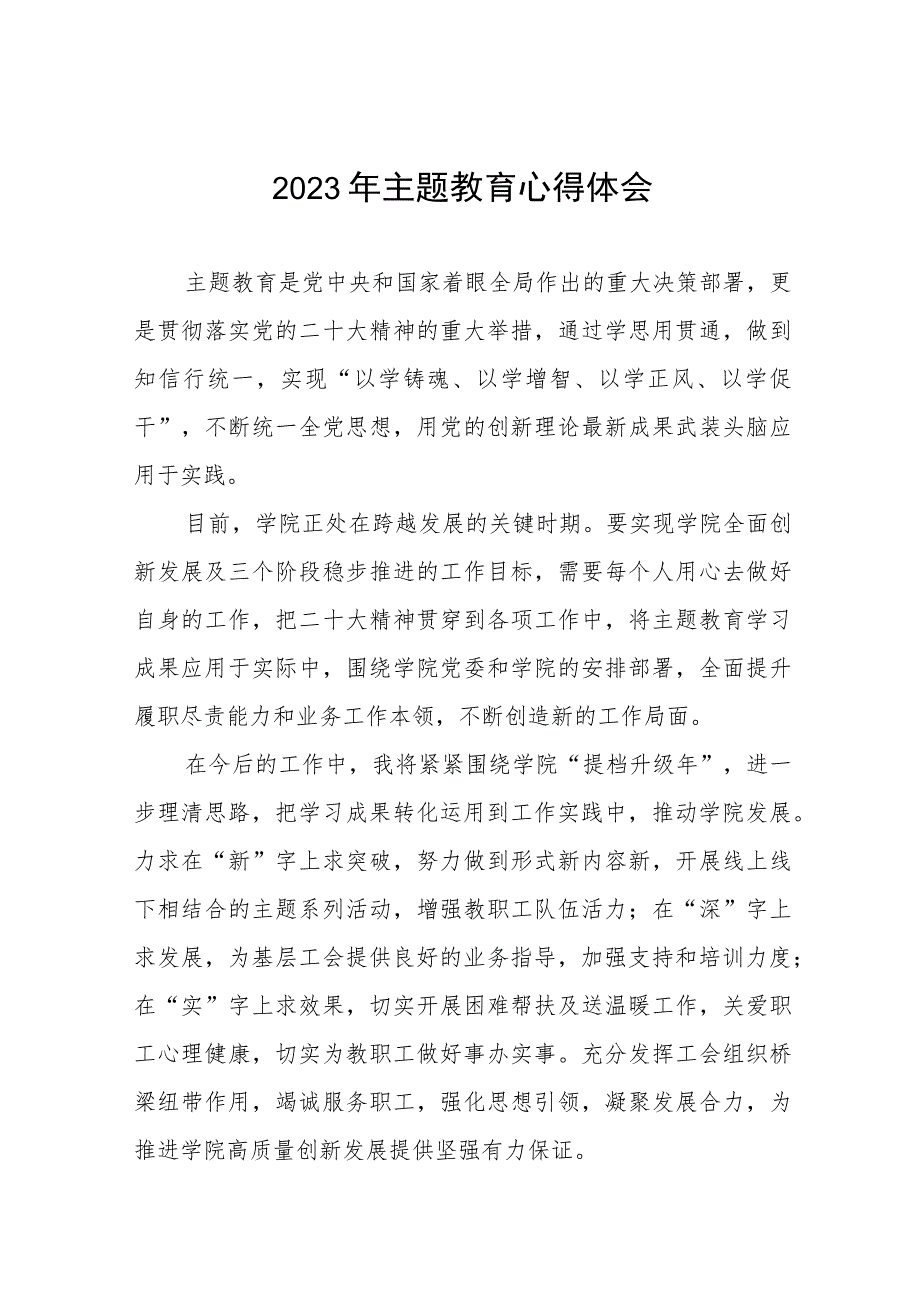 2023年主题教育心得体会
主题教育是党中央和国家着眼全局作出的重大决策部署，更
是贯彻落实党的二十大精神的重大举措，通过学思用贯通，做到
知信行统一，实现“以学铸魂、以学增智、以学正风、以学促
干”，不断统一全党思想，用党的创新理论最新成果武装头脑应
用于实践。
目前，学院正处在跨越发展的关键时期。要实现学院全面创
新发展及三个阶段稳步推进的工作目标，需要每个人用心去做好
自身的工作，把二十大精神贯穿到各项工作中，将主题教育学习
成果应用于实际中，围绕学院党委和学院的安排部署，全面提升
履职尽责能力和业务工作本领，不断创造新的工作局面。
在今后的工作中，我将紧紧围绕学院“提档升级年”，进一
步理清思路，把学习成果转化运用到工作实践中，推动学院发展。
力求在“新”字上求突破，努力做到形式新内容新，开展线上线
下相结合的主题系列活动，增强教职工队伍活力；在“深”字上
求发展，为基层工会提供良好的业务指导，加强支持和培训力度；
在“实”字上求效果，切实开展困难帮扶及送温暖工作，关爱职
工心理健康，切实为教职工做好事办实事。充分发挥工会组织桥
梁纽带作用，竭诚服务职工，强化思想引领，凝聚发展合力，为
推进学院高质量创新发展提供坚强有力保证。